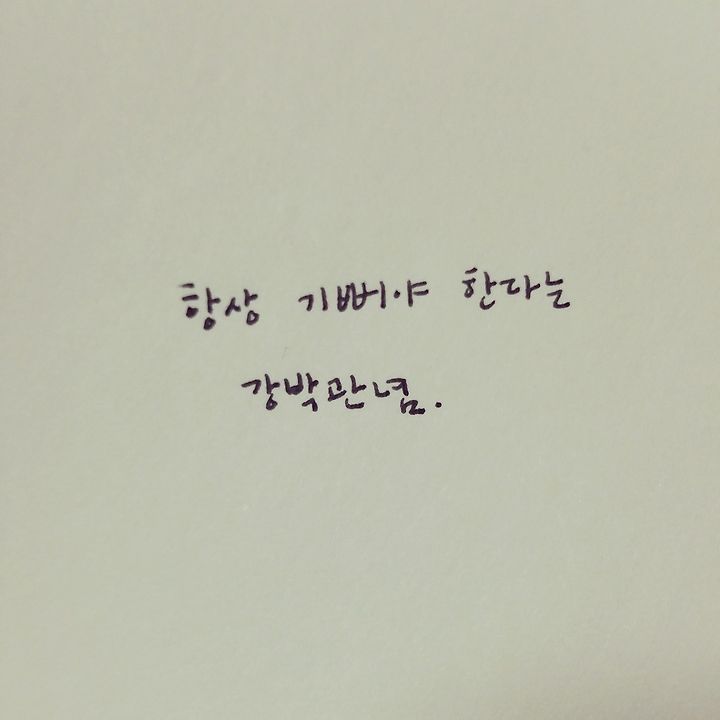 항상 기뻐야 한다는
강박관념.